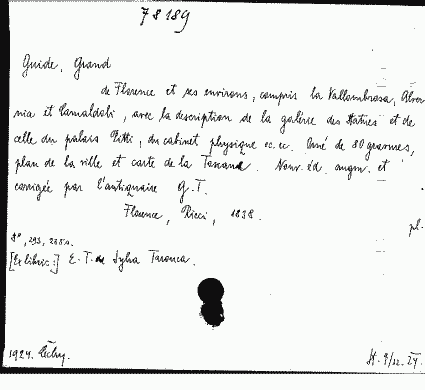 78189
Guide, Grand
de Florence et ses environs, compris la Vallombrosa, Alver
nia et Camaldoli, avec la description de la galérie des Statues et de
celle du palais Pitti, du cabinet physique ec. ec. Orné de 80 gravures,
plan de la ville et carte de la Toscane. Nouv. éd. augm. et
corrigée par l'antiquaire G. T.
Florence, Ricci, 1838.
pl.
8°, 293, 288 s.
[Ex libris:] E. T. de Sylva Tarouca.
1924. Čechy.
St. 9/12. 24.